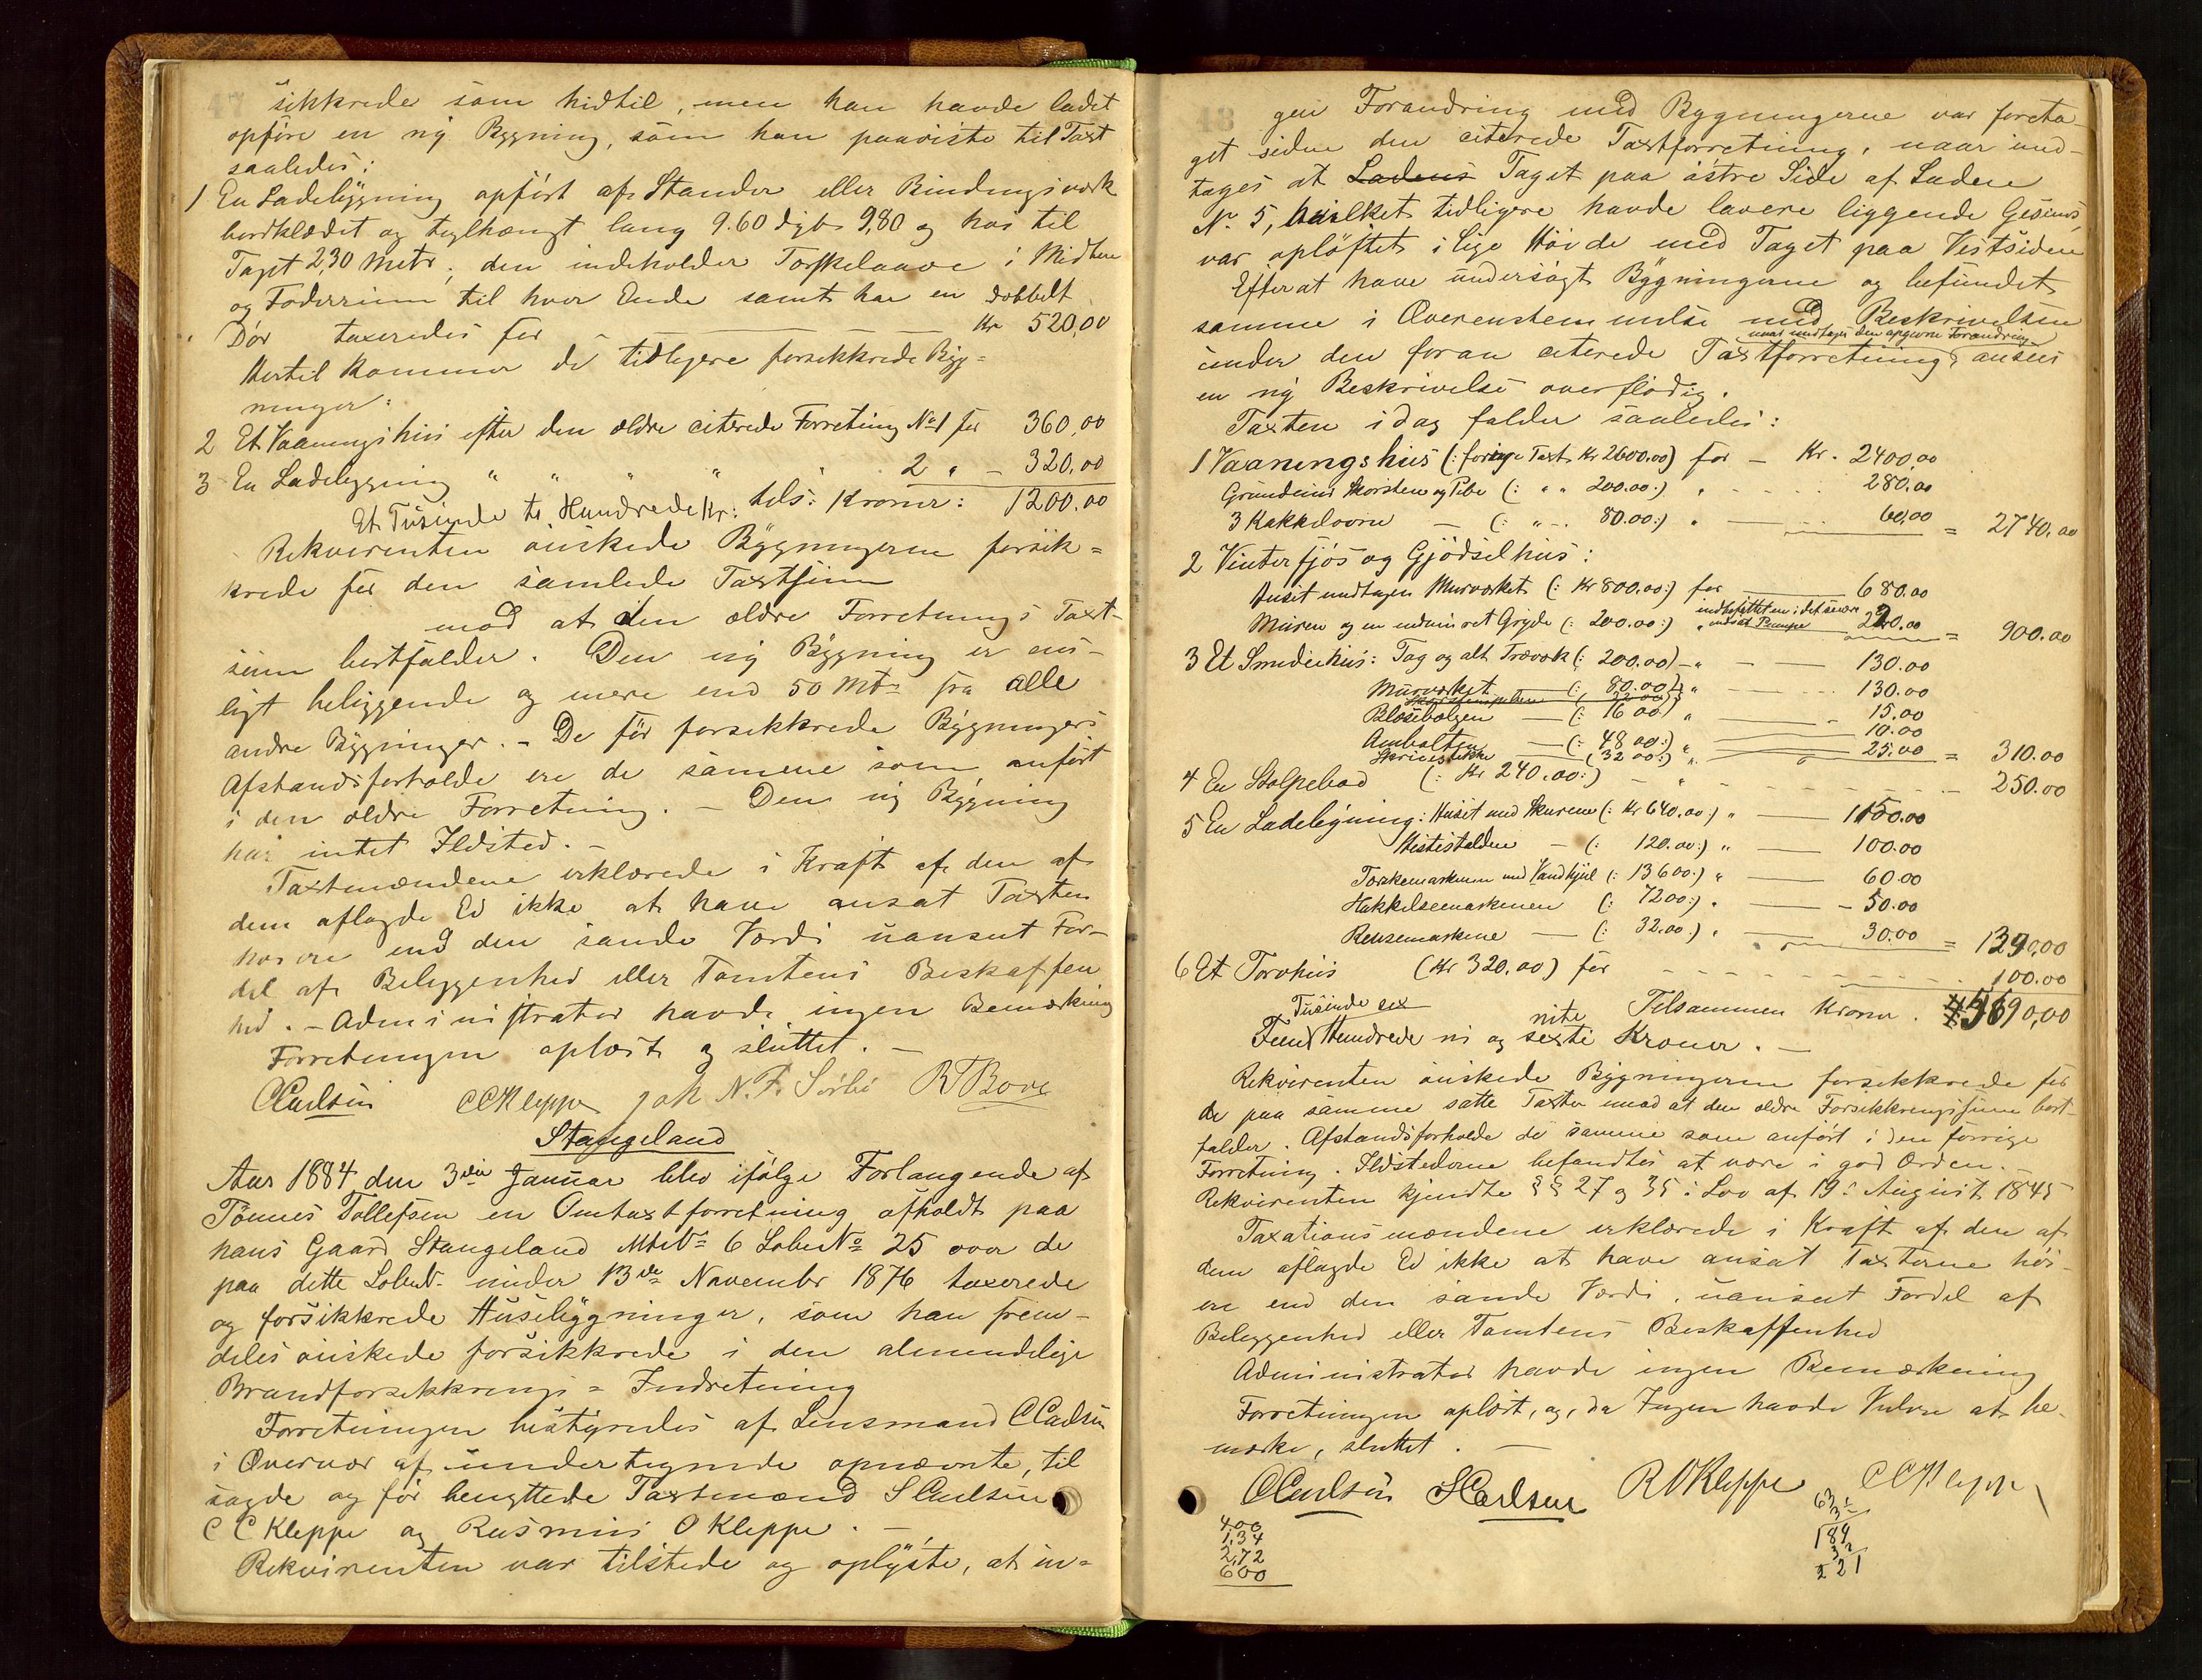 sikkrede som hidtil, men han havde ladet
opføre en ny Bygning, som han paaviste til Taxt
saaledes:
1 En Ladebygning opført af Stander eller Bindingsværk
bordklædet og teglhængt lang 9.60 dyb 9,80 og høi til
Taget 2,30 Metr, den indeholder Torskelaave i Midten
og Foderrum til hver Ende samt har en dobbelt
Dør taxeredes for — Kr 520,00
Hertil kommer de tidligere forsikkrede Byg=
ninger:
2 Et Vaaningshus efter den ældre citerede Forretning No 1 for 360,00
3 En Ladebygning " " " " 2 " - 320,00
Et Tusinde to Hundrede Kr: tils: Kroner: 1200.00
Rekvirenten ønskede Bygningerne forsik=
krede for den samlede Taxtsum
mod at den ældre Forretnings Taxt-
sum bortfalder. Den ny Bygning er ens-
ligt beliggende og mere end 50 Mtr fra alle
andre Bygninger. - De før forsikkrede Bygningers
Afstandsforholde ere de samme som anført
i den ældre Forretning. - Den ny Bygning
har intet Ildsted. -
Taxtmændene erklærede i Kraft af den af
dem aflagde Ed ikke at have ansat Taxten
høiere end den sande Værdi uanseet For-
del af Beliggenhed eller Tomtens Beskaffen
hed. - Administrator havde ingen Bemærkning
Forretningen oplæst og sluttet. -
CCarlsen CCKleppe Joh N. F. Sörbö RTBore
Stangeland
Aar 1884 den 3die Januar blev ifølge Forlangende af
Tönnes Tollefsen en Omtaxtforretning afholdt paa
hans Gaard Stangeland Mtr No 6 Løbe No 25 over de
paa dette Løbe No under 13de November 1876 taxerede
og forsikkrede Husebygninger, som han frem-
deles ønskede forsikkrede i den almindelige
Brandforsikkrings = Indretning
Forretningen bestyredes af Lensmand CCarlsen
i Overvær af undertegnede opnævnte, til
sagde og før benyttede Taxtmænd S Carlsen
C C Kleppe og Rasmus O Kleppe. -
Rekvirenten var tilstede og oplyste, at in=
gen Forandring med Bygningerne var foreta-
get siden den citerede Taxtforretning, naar und-
tages at Ladens Taget paa østre Side af Laden
No 5, hvilket tidligere havde lavere liggende Gesims,
var opløftet i lige Høide med Taget paa Vestsiden
Efterat have undersøgt Bygningerne og befundet
samme i Overenstemmelse med Beskrivelsen
naar undtages den opgivne Forandring
under den foran citerede Taxtforretning, ansees
en ny Beskrivelse overflødig.
Taxten idag falder saaledes:
1 Vaaningshus (: forrige Taxt Kr 2600.00) for - Kr. 2400,00
Grundmur Skorsten og Pibe (: " " 200.00:) " 280,00
3 Kakkelovne - (: " - . 80.00:) " 60,00 = 2740,00
2 Vinterfjøs og Gjødselhus:
Huset undtagen Murværket (: Kr 800.00:) for 680.00
indbefattet en i det senere
Muren og en indmuret Gryde (: 200.00:) " indsat Pumpe 220.00 = 900.00
3 Et Smidiehus: Tag og alt Træværk (: 200.00) - " 130.00
Murværket (: 80.00:) " 130.00
Blæsebælgen (: 16 00:) " 15.00
10.00
Ambolten (: 48 00:) "
Skruestikke (32 00:) " 25.00 = 310.00
4 En Stolpebod (: Kr 240.00:) " 250.00
5 En Ladebygning: Huset med Skurene (: Kr 640.00:) " 1150.00
Hestestalden - (: 120.00:) " 100.00
Torskemaskinen med Vandhjul (: 136 00:) " 60.00
Hakkelsemaskinen (: 72 00:) " - 50.00
Rensemaskine - (: 32.00:) " 30.00 = 1390,00
6 Et Torvhus (Kr 320,00) for 100.00
Tilsammen Kroner . 5690,00
Tusinde sex niti
Fem Hundrede ni og sexti Kroner. -
Rekvirenten ønskede Bygningerne forsikkrede for
de paa samme satte Taxter mod at den ældre Forsikkringssum bort-
falder. Afstandsforholde de samme som anført i den forrige
Forretning. Ildstederne befandtes at være i god Orden. -
Rekvirenten kjendte §§ 27 og 35 i Lov af 19: August 1845
Taxationsmændene erklærede i Kraft af den af
dem aflagde Ed ikke at have ansat Taxterne høi-
ere end den sande Værdi, uanseet Fordel af
Beliggenhed eller Tomtens Beskaffenhed
Administrator havde ingen Bemærkning
Forretningen oplæst, og, da Ingen havde Videre at be-
mærke, sluttet. -
CCarlsen SCarlsen ROKleppe CCKleppe
4,00
1,34
2,72
600
63
3
189
32
221